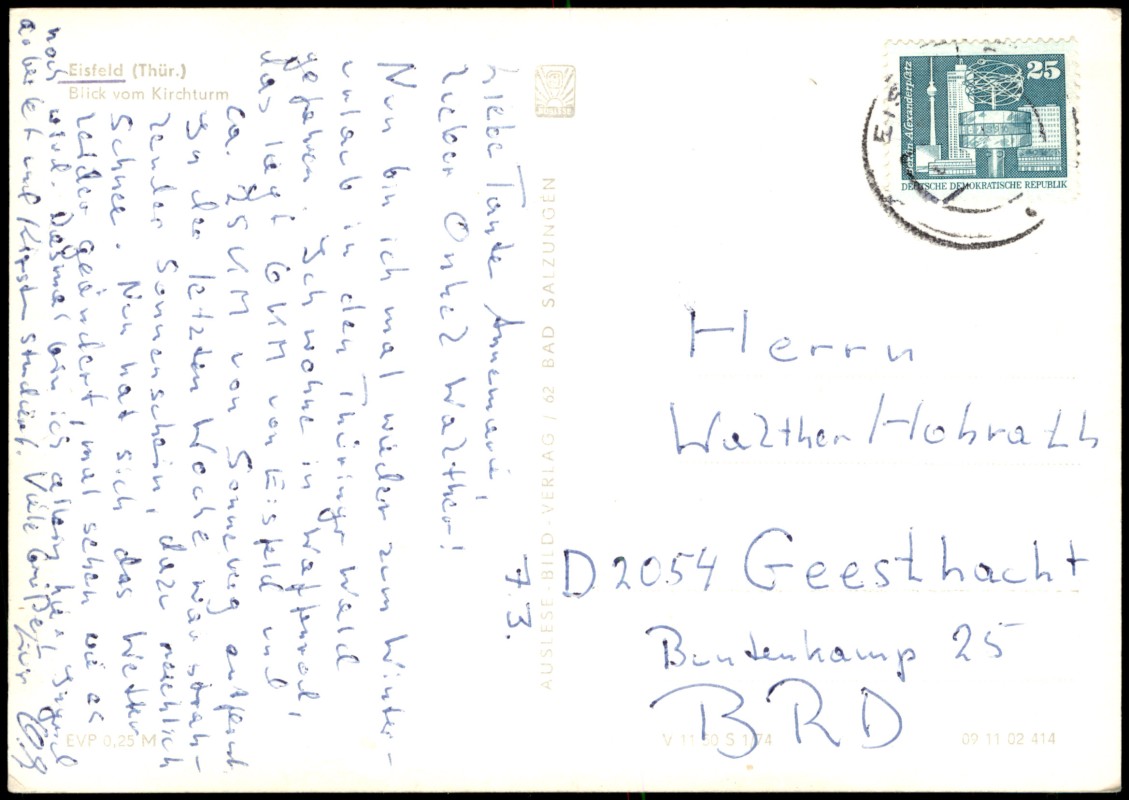 Eisfeld (Thür.)
Blick vom Kirchturm
7.3.
Liebe Tante Annemarie,
lieber Onkel Walther!
Nun bin ich mal wieder zum Winter-
urlaub in den Thüringr Wald
gefahren. Ich wohne in
das legt 6 KM von Eisfeld und
ca. 25 KM von Sonneberg entfernt.
In der letzten Woche war strah-
lender Sonnenschein, dazu reichlich
Schnee. Nun hat sich das Wetter
leider geändert, mal sehen wie es
noch wird. Diesmal bin ich allein hier, Sigrid
arbeitet und Kirsten studiert. Viele Grüße,
AUSLESE-BILD-VERLAG / 62 BAD SALZUNGEN
EVP 0,25 M
V 11 50 S 1/74
09 11 02 414
Berlin-Alexanderplatz
25
DEUTSCHE DEMOKRATISCHE REPUBLIK
EIS
Herrn
Walther Hobrath
D2054 Geesthacht
Buntenkamp 25
BRD